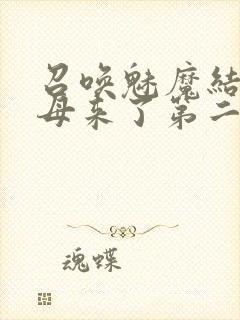 召唤魅魔結
母来了第二
魂蝶